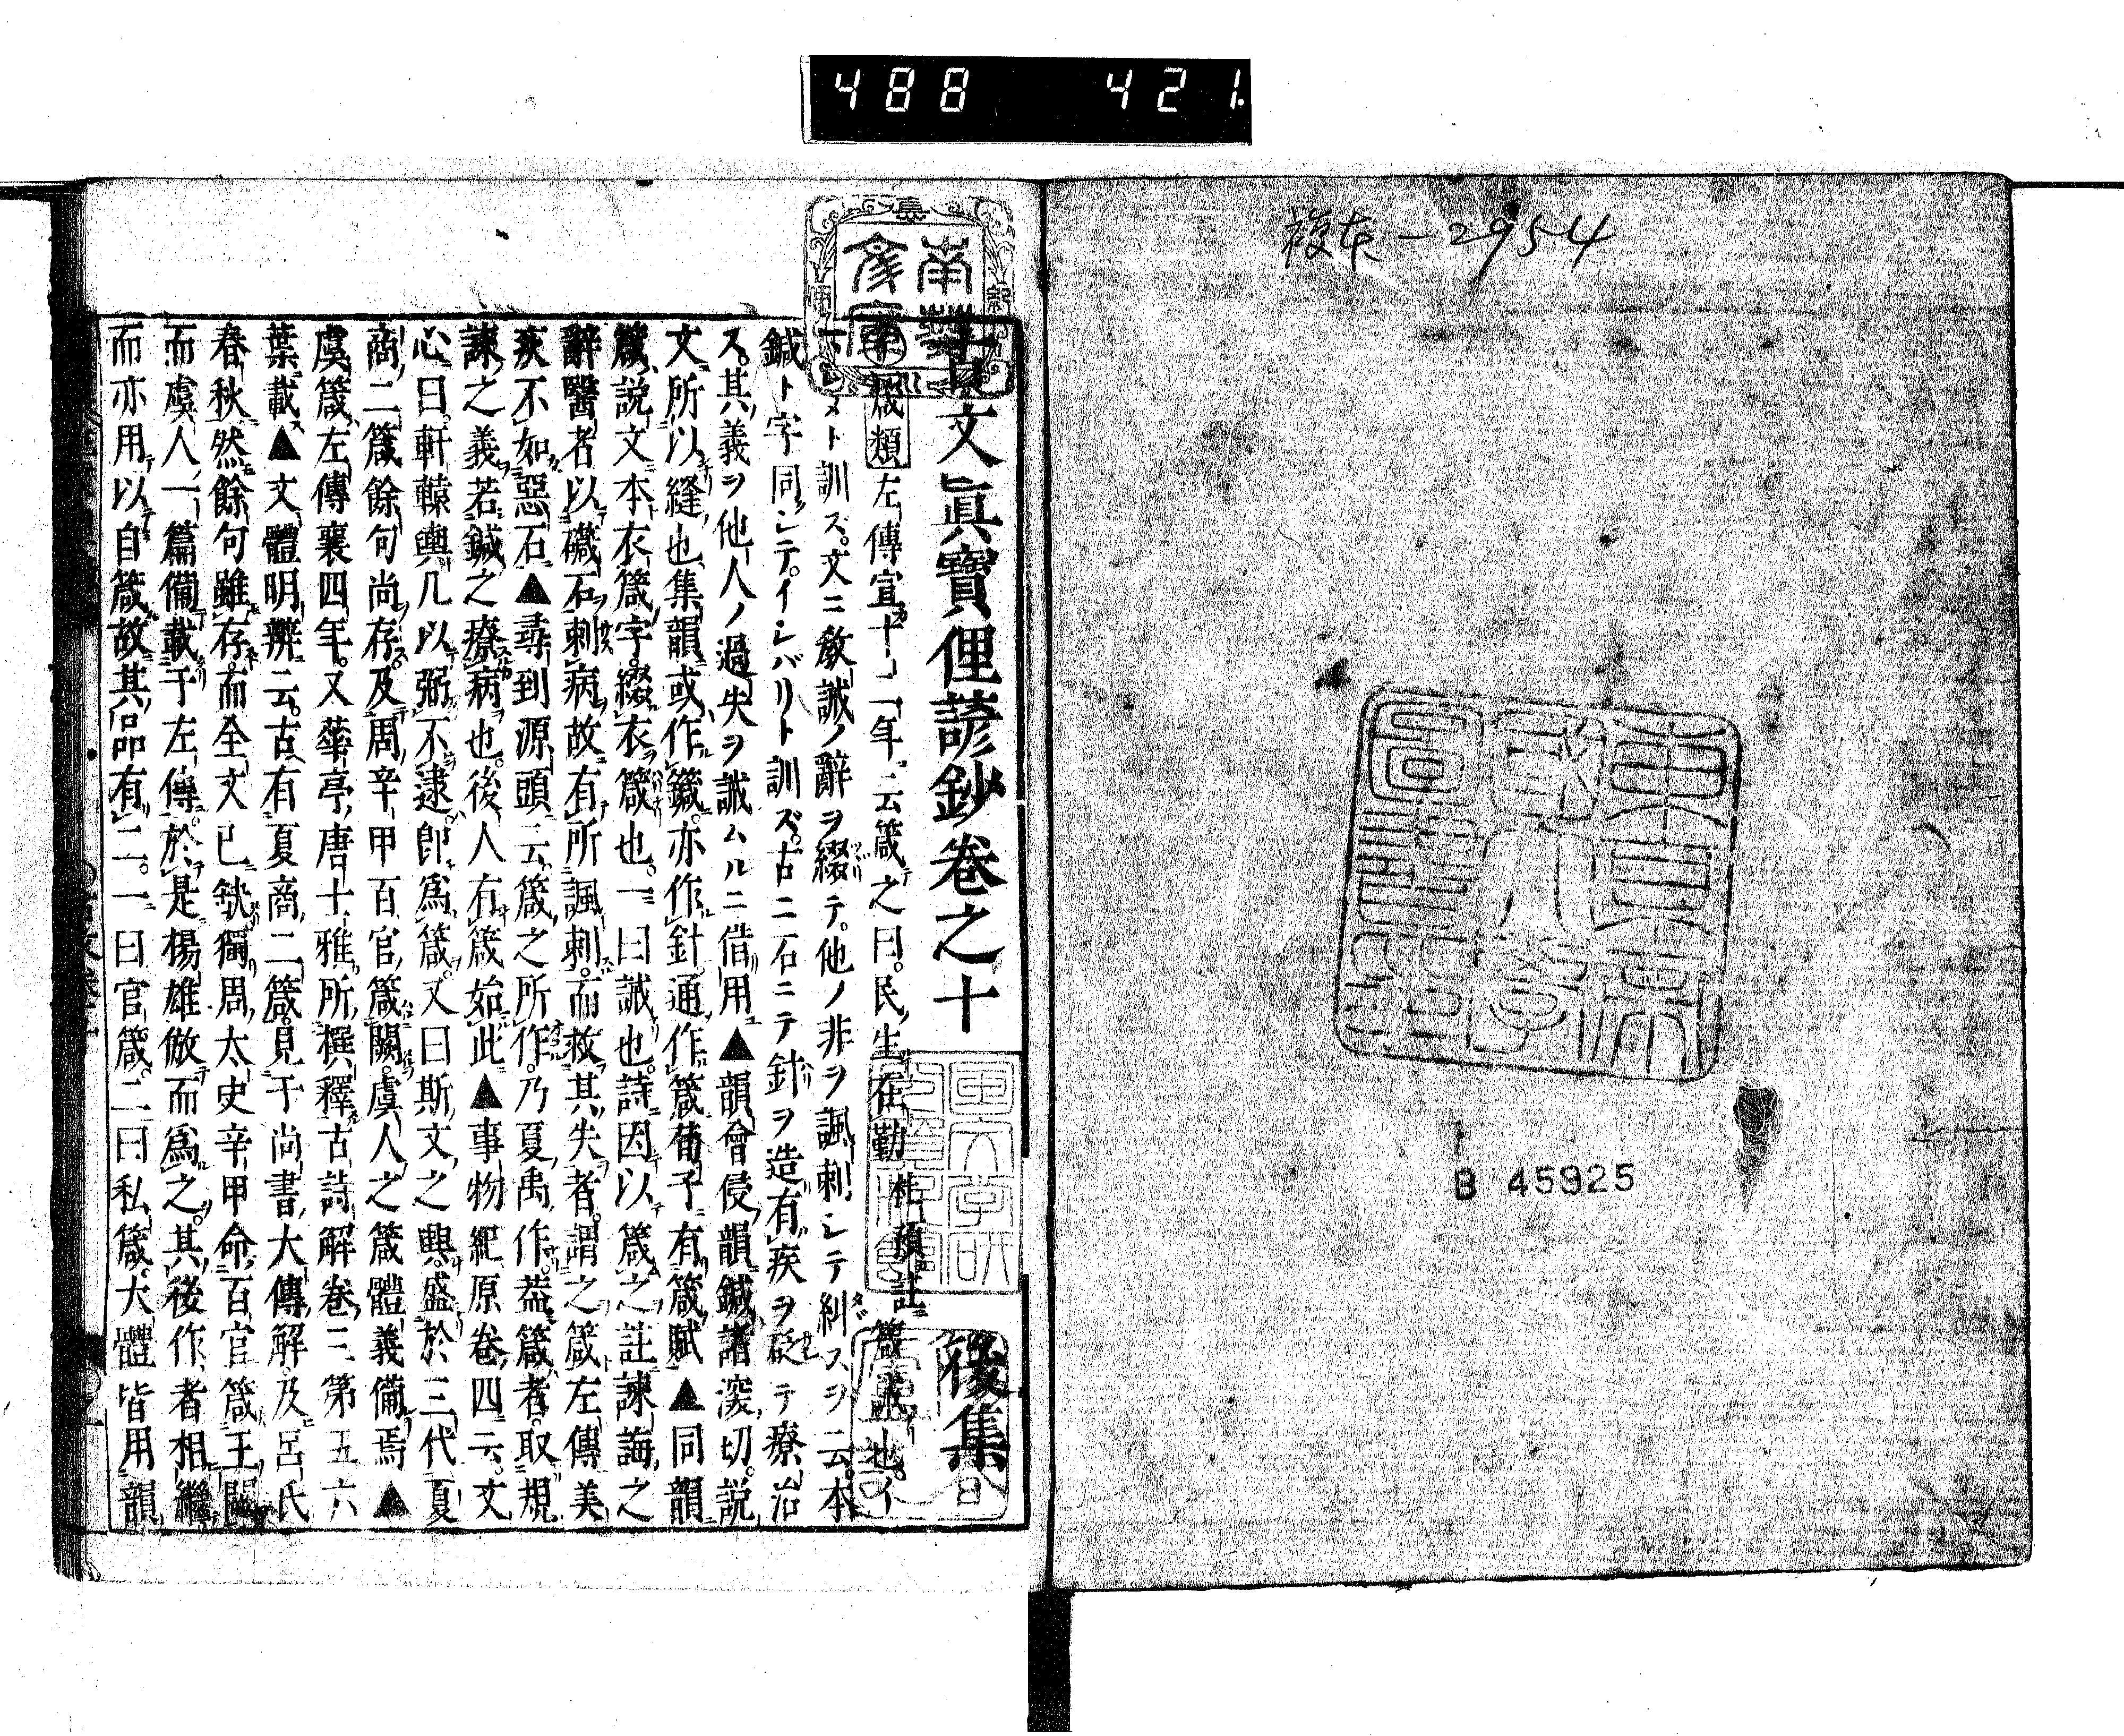 488 421
複本-2954
B 45925
古文眞寶俚諺鈔卷之十 後集
箴類 左傳宣十二年ニ云箴之曰民生在勤 杜預註 箴誡也イ
マシメト訓ス文ニ敎誡ノ辭ヲ綴テ他ノ非ヲ諷刺シテ糾スヲ云本
鍼ト字同シテイシバリト訓ズ古ニ石ニテ針ヲ造有疾ヲ砭テ療治
ス其義ヲ他人ノ過失ヲ誡ムルニ借用▲韻會侵韻鍼諸深切說
文所以縫也集韻或作鐵亦作針通作箴荀子有箴賦▲同韻
箴說文本衣箴字綴衣箴也一曰誡也詩因以箴之註諫誨之
辭醫者以礒石刺病故有所諷刺而救其失者謂之箴左傳美
疢不如惡石▲尋到源頭云箴之所作乃夏禹作葢箴者取規
諫之義若鍼之療病也後人有箴始此▲事物紀原卷四云文
心曰軒轅輿几以弼不逮卽爲箴又曰斯文之興盛於三代夏
商二箴餘句尚存及周辛甲百官箴闕虞人之箴體義備焉▲
虞箴左傳襄四年又華亭唐士雅所撰釋古詩解卷三第五六
葉載▲文體明辨云古有夏商二箴見于尚書大傳解及呂氏
春秋然餘句雖存而全文已缺獨周太史辛甲命百官箴王闕
而虞人一篇備載于左傳於是楊雄倣而爲之其後作者相繼
而亦用以自箴故其品有二一曰官箴二曰私箴大體皆用韻